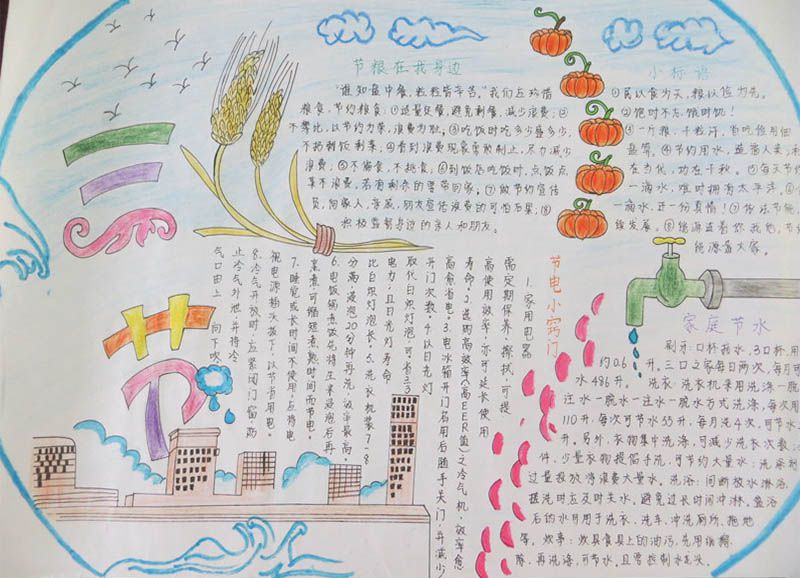 三
节
节粮在我身边
"谁知盘中餐，粒粒皆辛苦。"我们应珍惜
粮食，节约粮食：①适量定餐，避免剩餐，减少浪费；②
不攀比，以节约为荣，浪费为耻。③吃饭时吃多少盛多少，
不扔剩饭剩菜；④看到浪费现象要敢制止，尽力减少
浪费；⑤不偏食，不挑食；⑥到饭店吃饭时，点饭点
菜不浪费，若有剩余的要带回家；⑦做节约宣传
员，向家人、亲戚、朋友宣传浪费的可怕后果；⑧
积极监督身边的亲人和朋友。
小标语
①民以食为天，粮以俭为先。
②饱时不忘饿时饥！
③一斤粮，千粒汗，省吃俭用细
盘算。④节约用水，造福人类，利
在当代，功在千秋。⑥每天节约
一滴水，难时拥有太平洋。⑥
一滴水，还一份真情！⑦
发展。⑧能源连着你我他，节
能源靠大家。
节电小窍门
1.家用电器
需定期保养、擦拭，可提
高使用效率，亦可延长使用
寿命。2.选购高效率(高EER值)之冷气机，效率愈
高愈省电。3.电冰箱开门名用后随手关门，并减少
开门次数。4.以日光灯
取代白炽灯泡可省2/3
电力，且日光灯寿命
比白炽灯泡长。5.洗衣机装7-8
分满，浸泡20分钟再洗，效率最高。
6.电饭锅煮饭先将生米浸泡后再
烹煮，可缩短煮熟时间而节电。
7.睡觉或长时间不使用，应将电
视电源插头拔下，以节省用电。
8.冷气开放时，应紧闭门窗防
止冷气外泄，并将冷
气口由上向下吹
家庭节水
刷牙：口杯接水，3口杯，用
约0.6升。三口之家每日两次，每月可
水486升。洗衣：洗衣机采用洗涤—脱
注水—脱水—注水—脱水方式洗涤，每次用
110升，每次可节水55升，每月洗4次，可节水
升。另外，衣物集中洗涤，可减少洗衣次数；
件，少量衣物提倡手洗，可节约大量水；洗涤剂
过量投放将浪费大量水。洗浴：间断放水淋浴，
搓洗时应及时关水，避免过长时间冲淋。盆浴
后的水可用于洗衣、洗车、冲洗厕所、拖地
等。炊事：炊具食具上的油污，先用纸擦
除，再洗涤，可节水，且要控制水龙头。